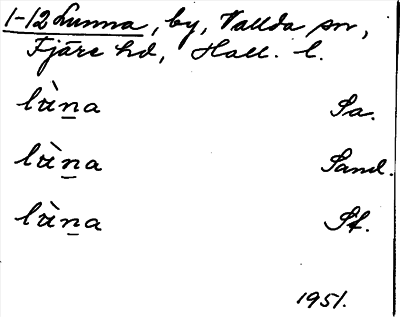 1-12 Lunna, by, Vallda sn,
Fjäre hd, Hall. l.
lὰ̱na Sa.
lὰ̱na Sand.
lὰ̱na St.
1951.